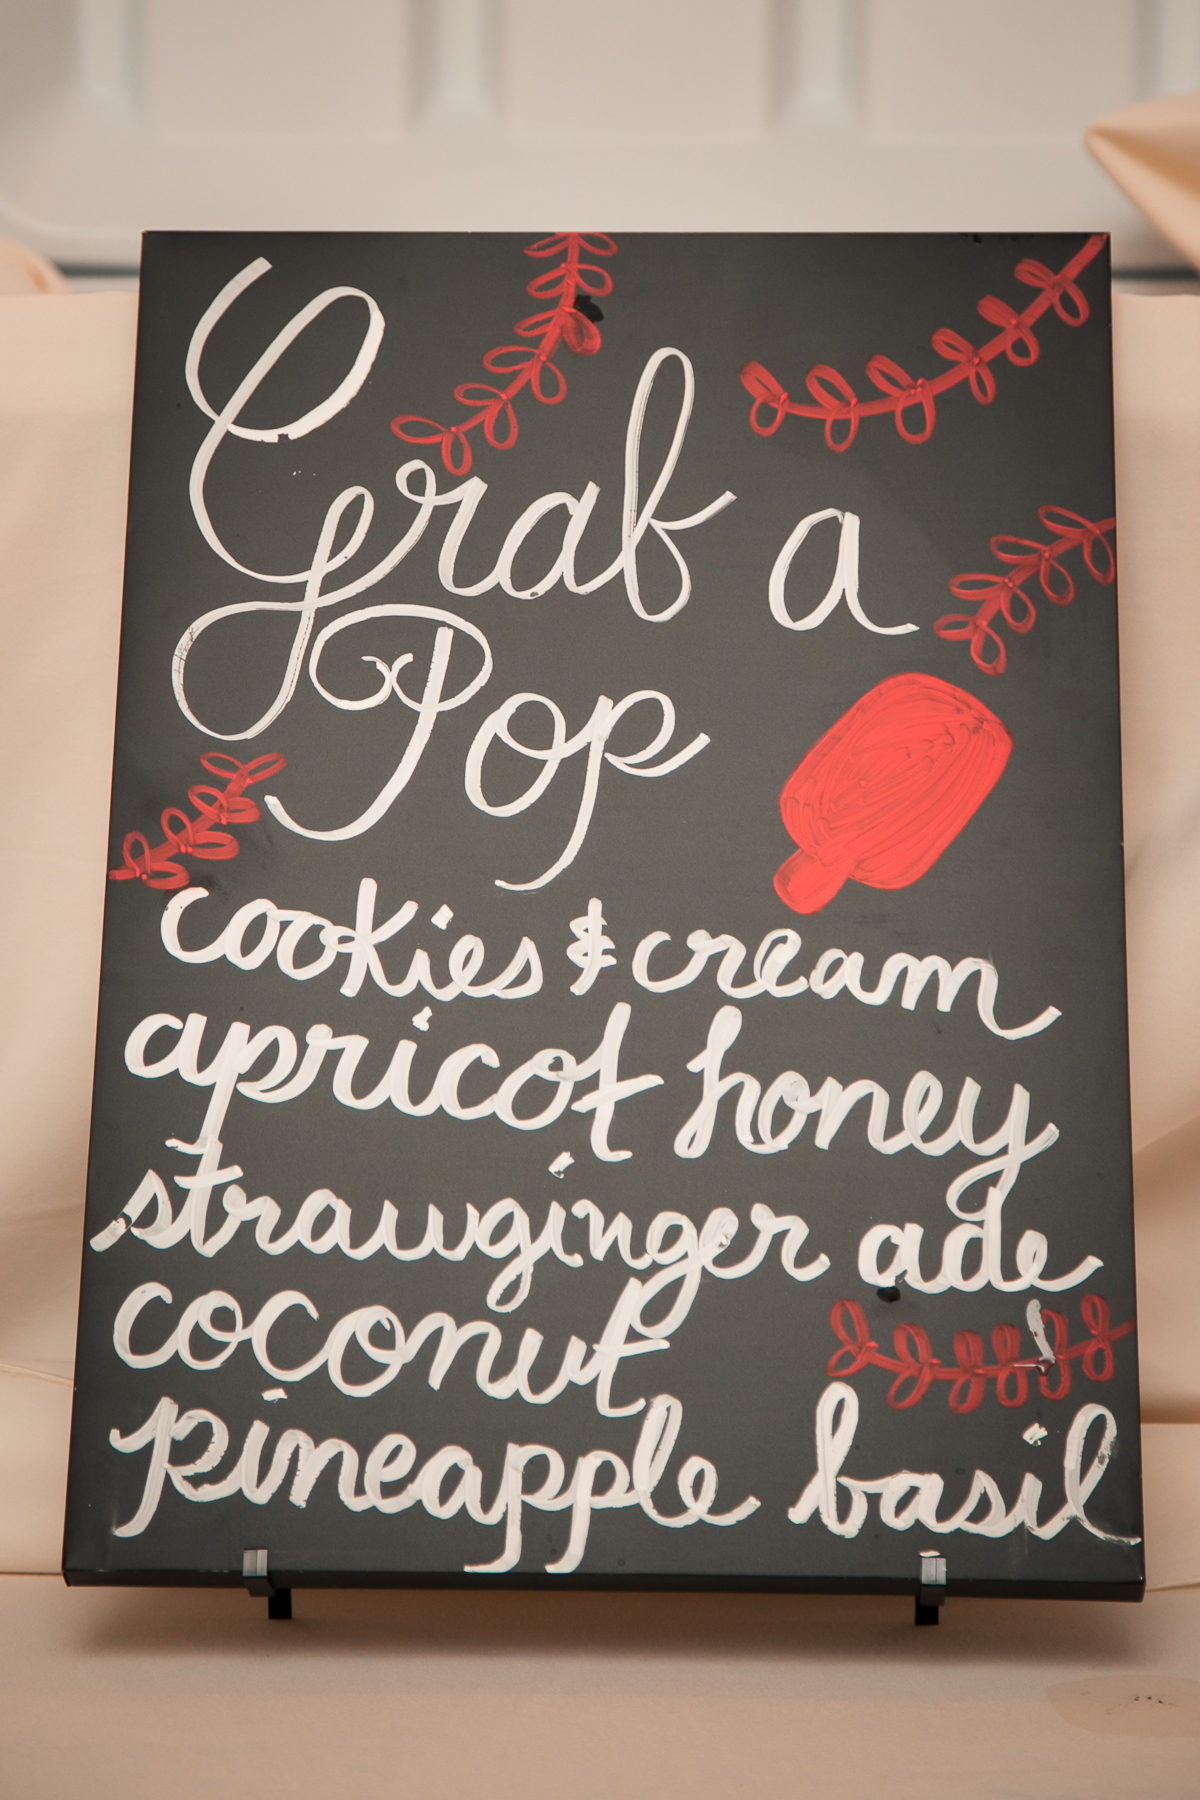 Grab a
Pop
cookies & cream
apricot honey
strawginger ade
coconut
pineapple basil